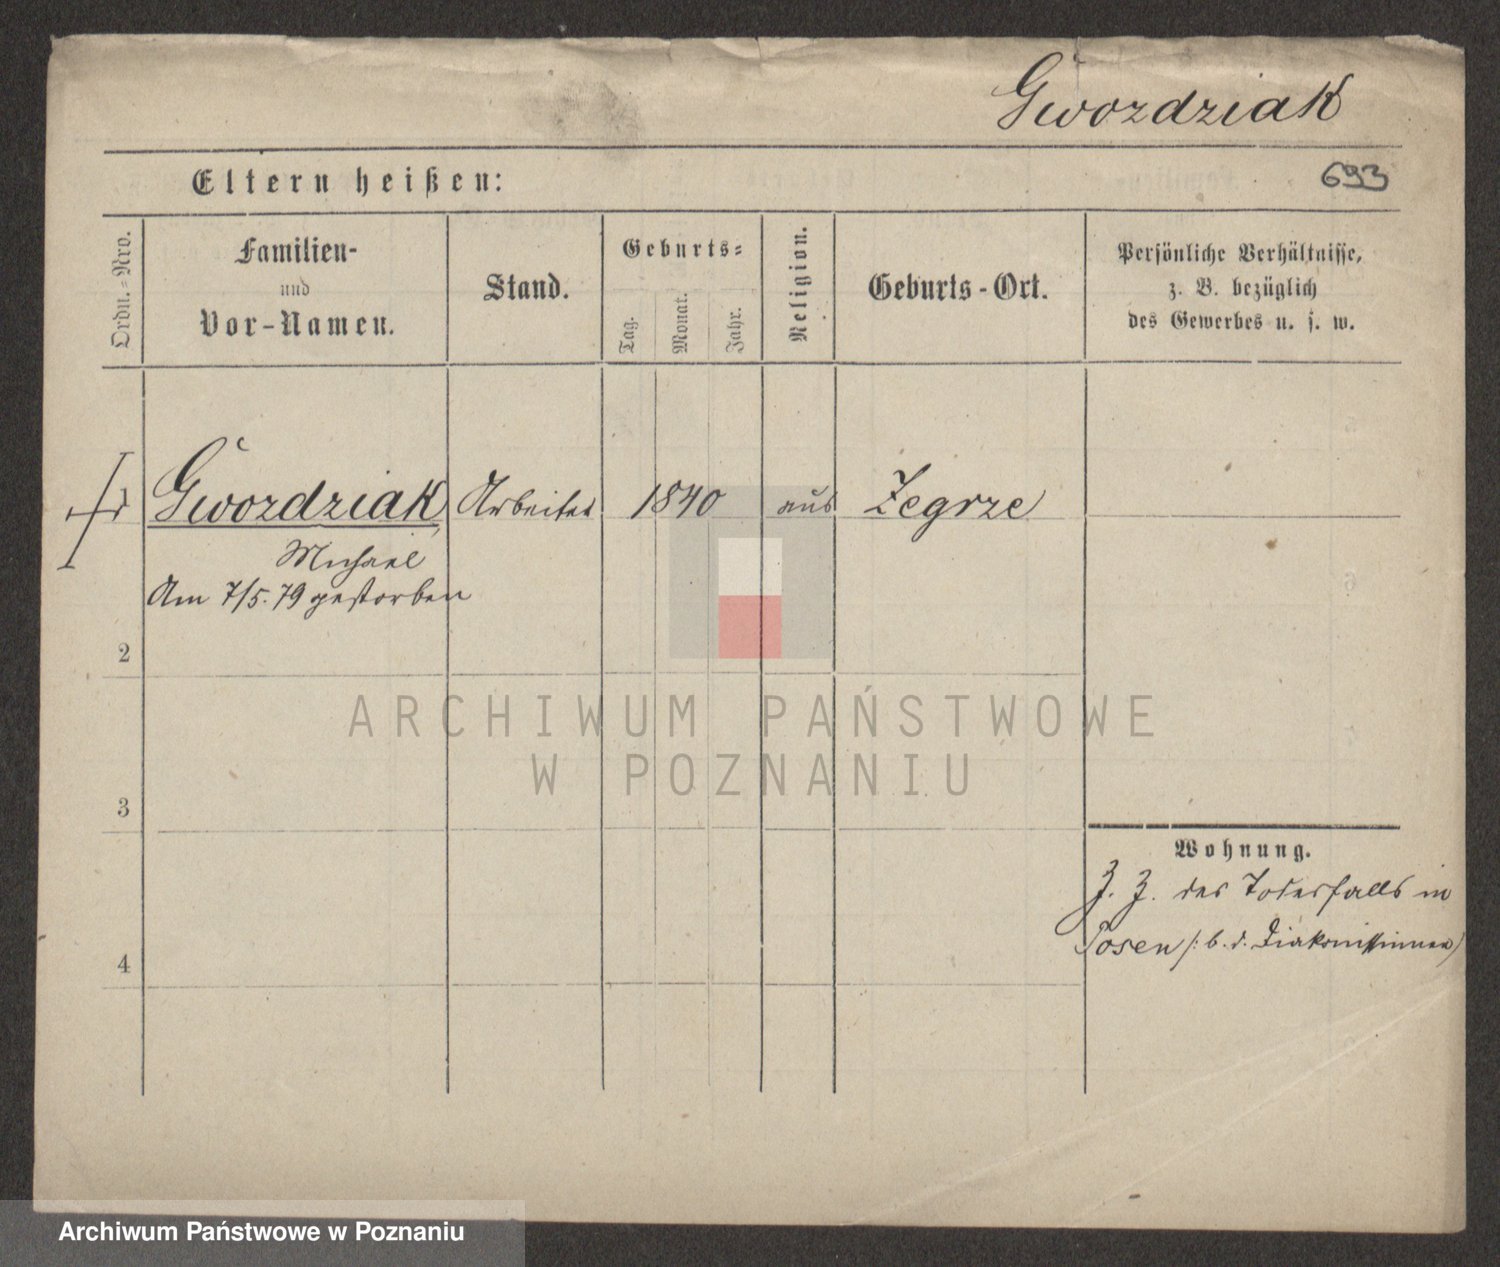 Gwozdziak
Eltern heißen:
693
Ordn.-Nro.
Familien-
und
Vor-Namen.
Stand.
Geburts-
Tag.
Monat.
Jahr.
Religion.
Geburts-Ort.
Persönliche Verhältnisse,
z. B. bezüglich
des Gewerbes u. s. w.
1 Gwozdziak Arbeiter 1840 aus Zegrze
Michael
Am 7/5. 79 gestorben
2
3
4
Wohnung.
Z. Z. des Todesfalls in
Posen /: b. d. Diakonissinnen /
ARCHIWUM PAŃSTWOWE
W POZNANIU
Archiwum Państwowe w Poznaniu